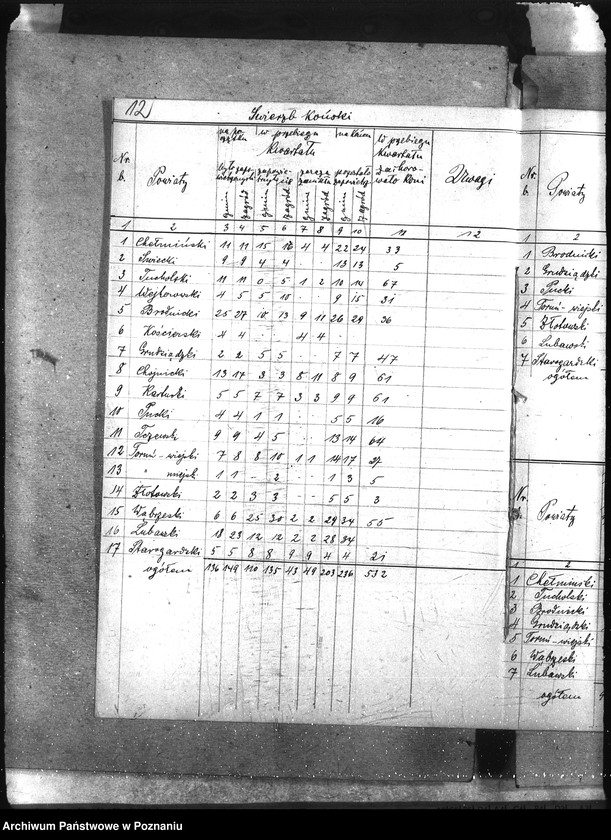 12
Świerzb Koński
Nr. b.
Powiaty
na początku
w przebiegu kwartału
na końcu
w przebiegu kwartału zachorowało koni
Uwagi
było zapowietrzonych
gmin zagród
gmin zagród
gmin zagród
gmin zagród
1 2 3 4 5 6 7 8 9 10 11 12
1 Chełmiński 11 11 15 16 4 4 22 24 33
2 Świecki 9 9 4 4 13 13 5
3 Tucholski 11 11 0 5 1 2 10 14 67
4 Wejherowski 4 5 5 10 9 15 31
5 Brodnicki 25 27 10 13 9 11 26 29 36
6 Kościerski 4 4 4 4
7 Grudziądzki 2 2 5 5 7 7 47
8 Chojnicki 13 17 3 3 8 11 8 9 61
9 Kartuski 5 5 7 7 3 3 9 9 61
10 Pucki 4 4 1 1 5 5 16
11 Tczewsk 9 9 4 5 13 14 64
12 Toruń-wiejski 7 8 8 10 1 1 14 17 27
13 " miejsk 1 1 - 2 1 3 5
14 Złotowski 2 2 3 3 5 5 3
15 Wąbrzeski 6 6 25 30 2 2 29 34 55
16 Lubawski 18 23 12 12 2 2 28 34
17 Starogardzki 5 5 8 8 9 9 4 4 21
ogółem 136 149 110 135 43 49 203 236 532
Nr. b.
Powiaty
1 2
1 Brodnicki
2 Grudziądzki
3 Pucki
4 Toruń-wiejski
5 Złotowski
6 Lubawski
7 Starogardzki
ogółem
Nr. b.
Powiaty
1 2
1 Chełmiński
2 Tucholski
3 Brodnicki
4 Grudziądzki
5 Toruń-wiejski
6 Wąbrzeski
7 Lubawski
ogółem
Archiwum Państwowe w Poznaniu